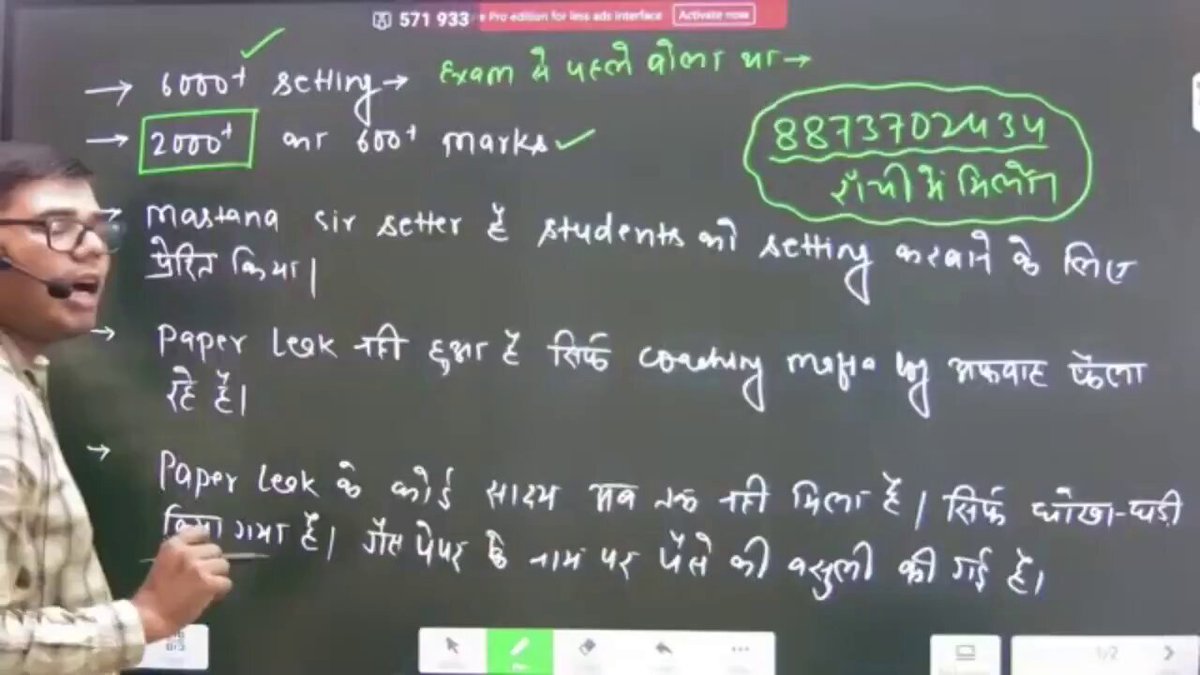 571 933
Pro edition for less ads interface Activate now
→ 6000+ setting → Exam से पहले बोला था →
→ 2000+ का 600+ marks
8873702434
राँची में मिलोगे
→ Mastana Sir setter है students को setting करवाने के लिए
प्रेरित किया।
→ Paper Leak नही हुआ है सिर्फ coaching mafia by अफवाह फैला
रहे हैं।
→ Paper Leak के कोई साक्ष्य अब तक नही मिला है। सिर्फ धोखा-धड़ी
किया गया है। गैस पेपर के नाम पर पैसे की वसुली की गई है।
1/2